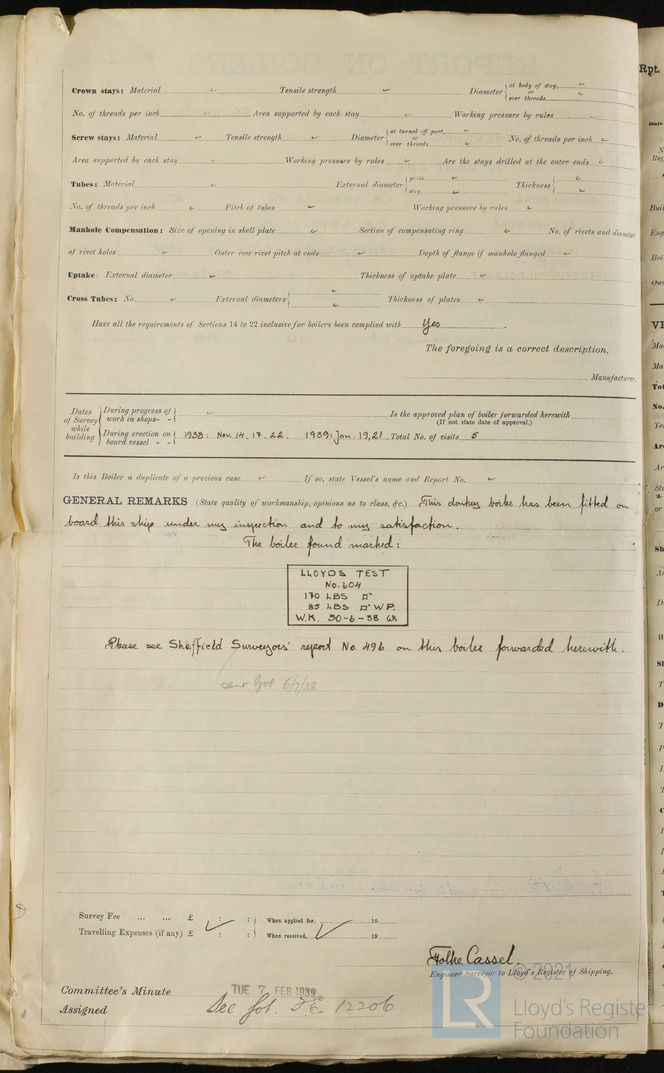 Crown stays: Material Tensile strength Diameter at body of stay, or over threads
No. of threads per inch Area supported by each stay Working pressure by rules
Screw stays: Material Tensile strength Diameter at turned off part, or over threads No. of threads per inch
Area supported by each stay Working pressure by rules Are the stays drilled at the outer ends
Tubes: Material External diameter plain stay Thickness
No. of threads per inch Pitch of tubes Working pressure by rules
Manhole Compensation: Size of opening in shell plate Section of compensating ring No. of rivets and diameter
of rivet holes Outer row rivet pitch at ends Depth of flange if manhole flanged
Uptake: External diameter Thickness of uptake plate
Cross Tubes: No. External diameters Thickness of plates
Have all the requirements of Sections 14 to 22 inclusive for boilers been complied with Yes.
The foregoing is a correct description,
Manufacturer.
Dates of Survey while building
During progress of work in shops - -
Is the approved plan of boiler forwarded herewith
(If not state date of approval.)
During erection on board vessel - - 1938: Nov. 14, 17, 22. 1939: Jan. 19, 21 Total No. of visits 5
Is this Boiler a duplicate of a previous case If so, state Vessel's name and Report No.
GENERAL REMARKS (State quality of workmanship, opinions as to class, &c.) This donkey boiler has been fitted on
board this ship under my inspection and to my satisfaction.
The boiler found marked:
LLOYDS TEST
No. 604
170 LBS □"
85 LBS □" W P.
W.K. 30-6-38 GK
Please see Sheffield Surveyors' report No. 496 on this boiler forwarded herewith.
sent Got 6/7/38
Survey Fee ... ... £ : : When applied for, 19
Travelling Expenses (if any) £ : : When received, 19
Folke Cassel.
Engineer Surveyor to Lloyd's Register of Shipping.
Committee's Minute TUE 7 FEB 1939
Assigned See Got. F.E. 12206
© 2021
LR
Lloyd's Register
Foundation
Rpt.